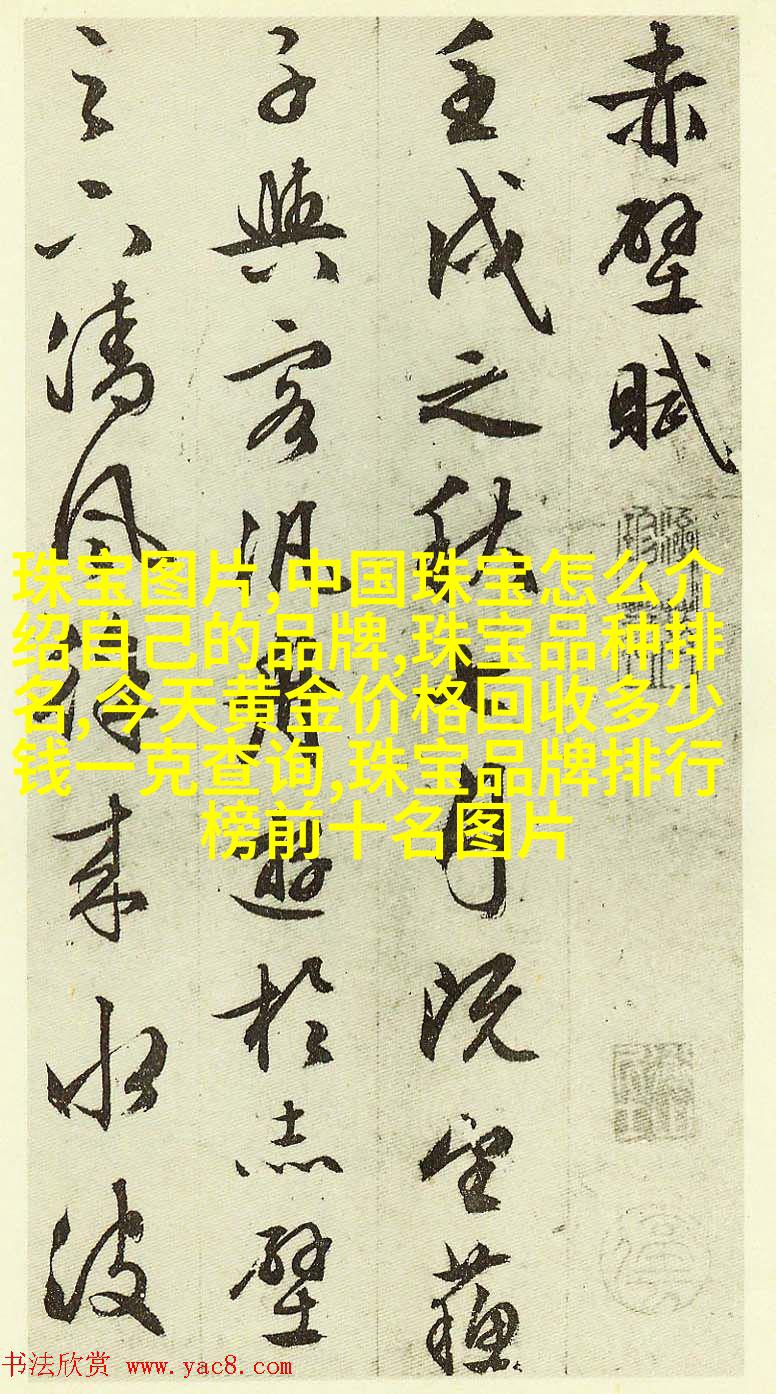 赤壁賦
壬戌之秋七月既望蘇
子與客汎舟遊於赤壁
之下清風徐來水波
珠宝图片,中国珠宝怎么介
绍自己的品牌,珠宝品种排
名,今天黄金价格回收多少
钱一克查询,珠宝品牌排行
榜前十名图片
书法欣赏 www.yac8.com